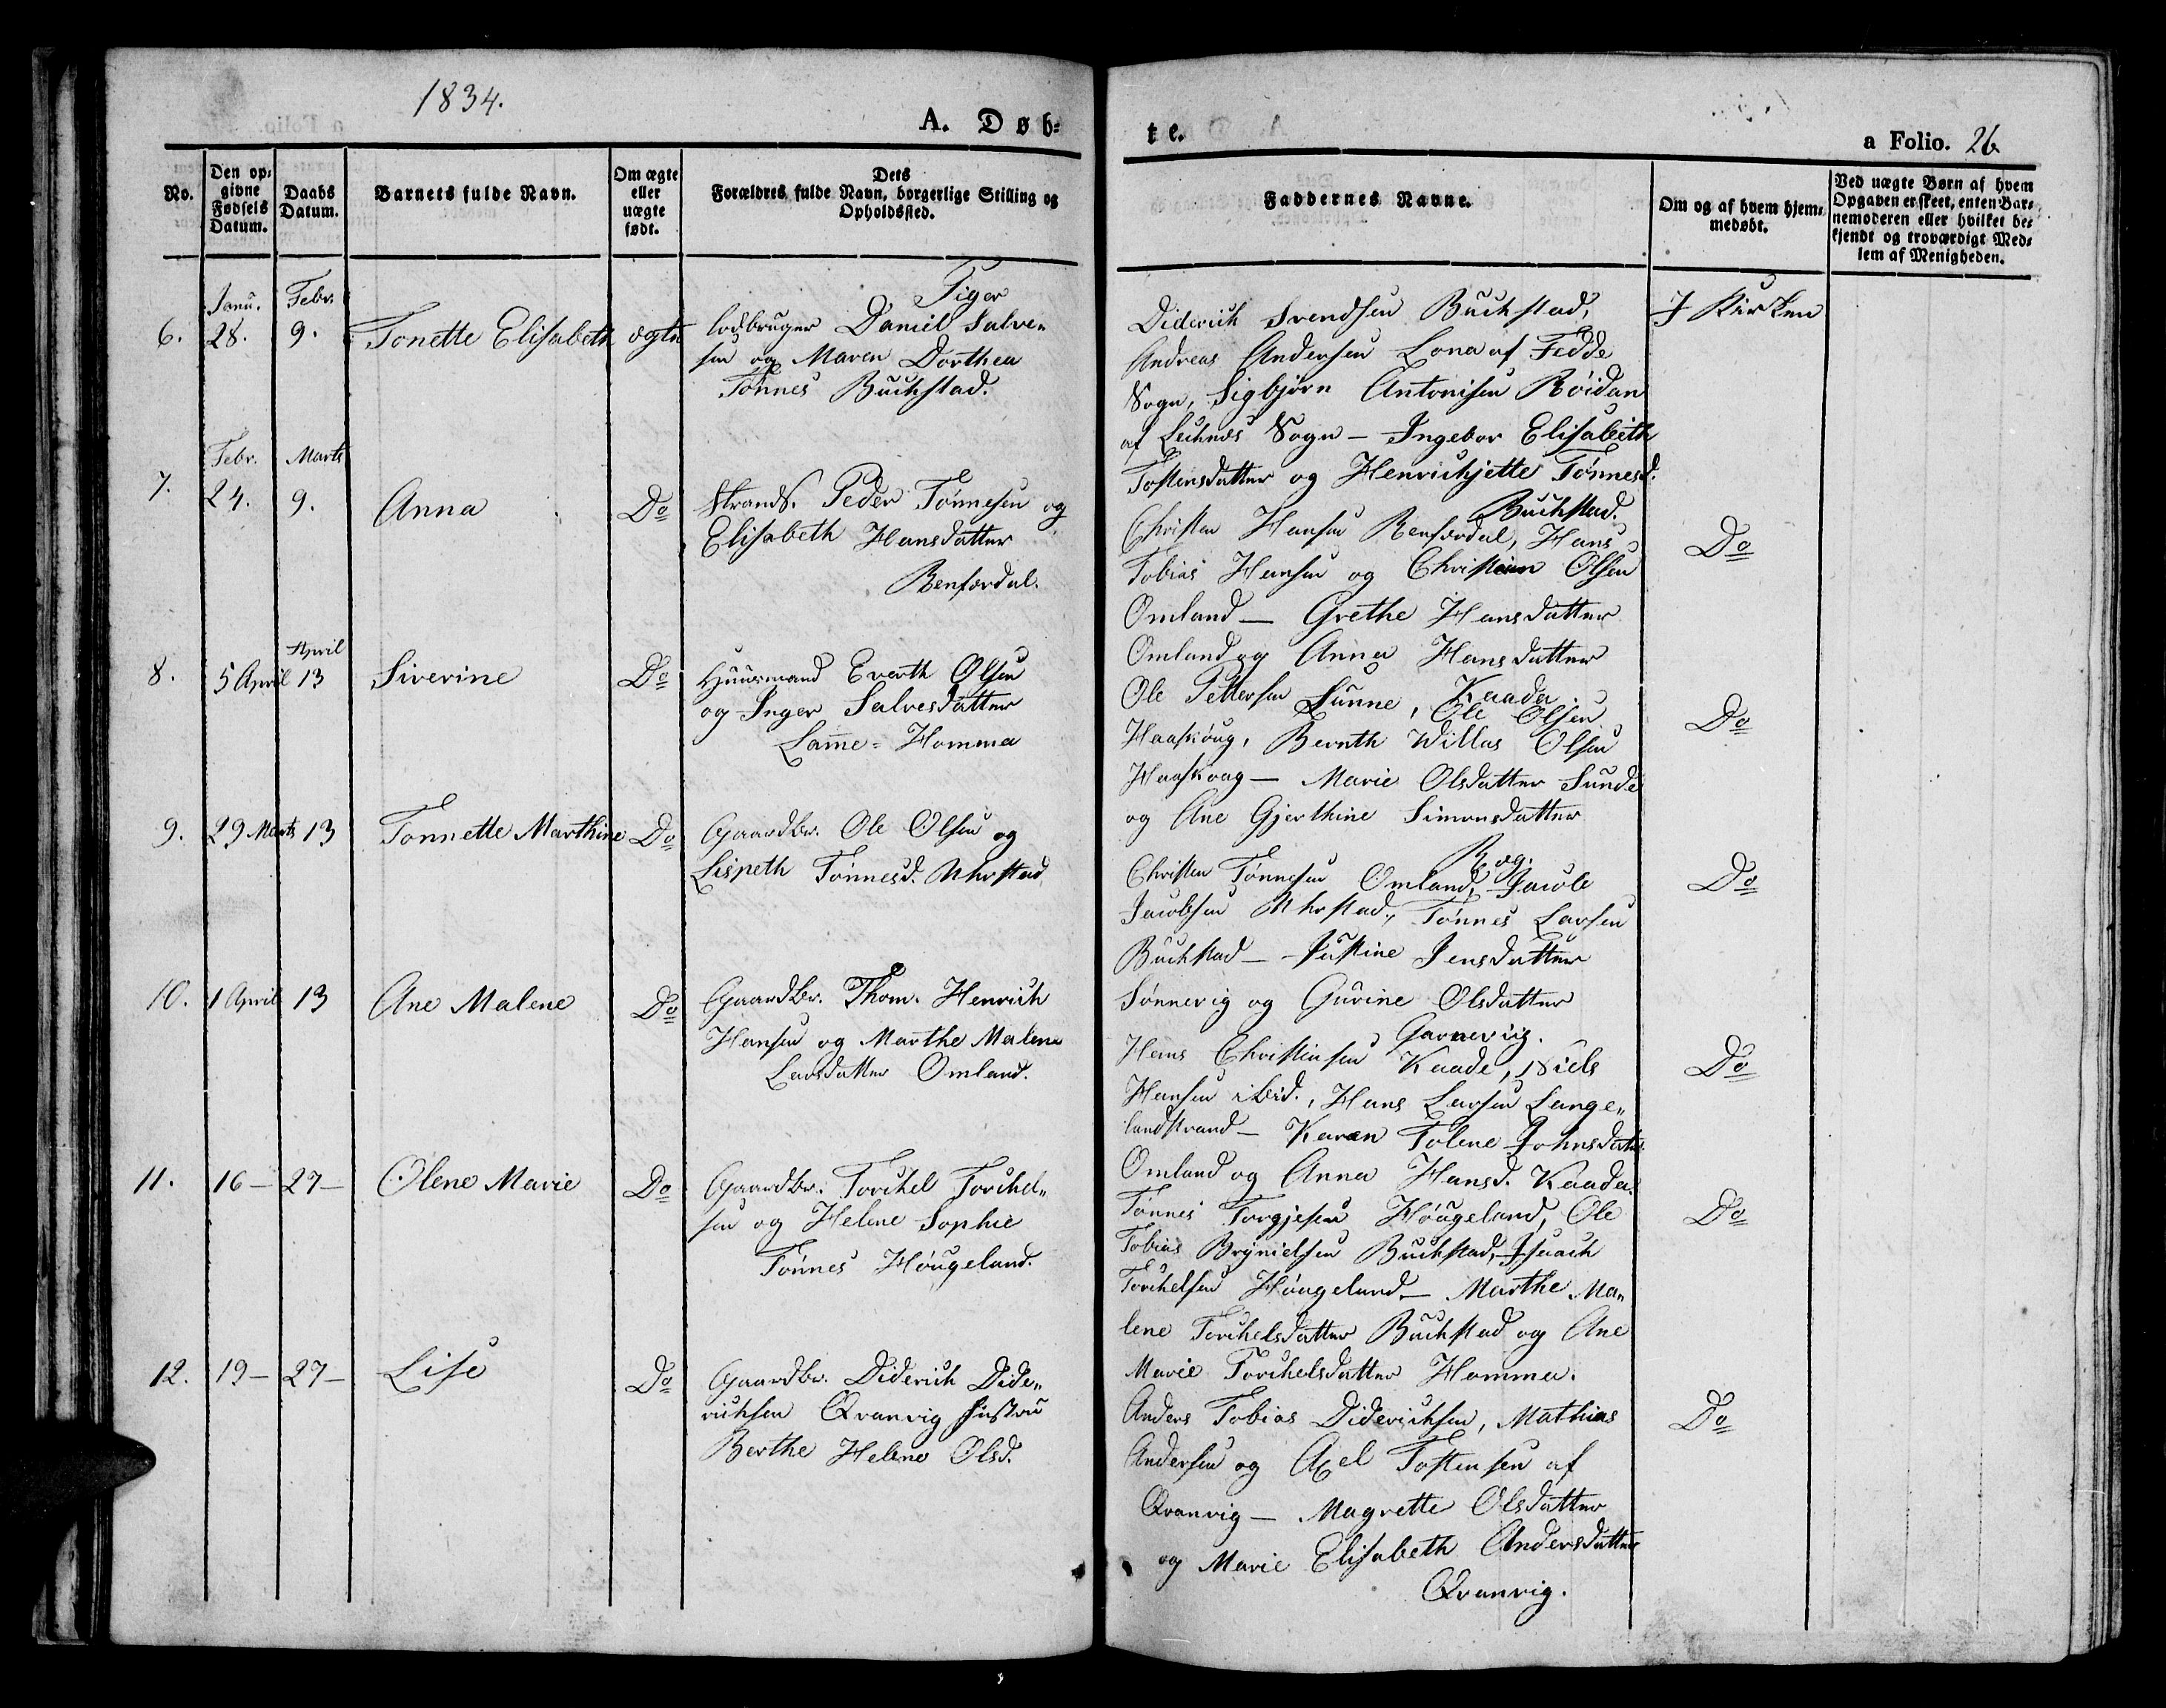 1834.
A. Døb=
te.
a Folio. 26
No.
Den op=
givne
Fødsels
Datum.
Daabs
Datum.
Barnets fulde Navn.
Om ægte
eller
uægte
født.
Dets
Forældres fulde Navn, borgerlige Stilling og
Opholdssted.
Faddernes Navne.
Om og af hvem hjem=
medøbt.
Ved uægte Børn af hvem
Opgaven er skeet, enten Bar=
nemoderen eller hvilket be=
kjendt og troværdigt Med=
lem af Menigheden.
6.
Janu.
28.
Febr.
9.
Tonette Elisabeth
ægte
Figer
lodbruger Daniel Salve„
sen og Maren Dorthea
Tønnes Buchstad.
Diderich Svendsen Buchstad,
Andreas Andersen Lona af Fedde
Sogn, Sigbjørn Antonisen Röidan
af Sogn — Ingebor Elisabeth
Tostensdatter og Henrichjette Tønnesd.
Buchstad.
I Kirken
7.
Febr.
24.
Marts
9.
Anna
Do
Strands. Peder Tønnesen og
Elisabeth Hansdatter
Renfærdal.
Christen Hansen Renfærdal, Hans
Tobias Hansen og Christian Olsen
Omland — Grethe Hansdatter
Omland og Anna Hansdatter
Kaada
Do
8.
5 April
April
13
Siverine
Do
Huusmand Everth Olsen
og Inger Salvesdatter
Lame= Homma
Ole Pettersen Sunne, Ole Olsen
Haaskøug, Bernth Willas Olsen
Haaskoag — Marie Olsdatter Sunde
og Ane Gjerthine Simonsdatter
Røg.
Do
9.
29 Marts
13
Tonnette Marthine
Do
Gaardbr. Ole Olsen og
Lispeth Tønnesd. Uhrstad
Christen Tønnesen Omland, Jacob
Jacobsen Uhrstad, Tønnes Larsen
Buchstad — Justine Jensdatter
Sønnevig og Gurine Olsdatter
Garnevig.
Do
10.
1 April
13
Ane Malene
Do
Gaardbr. Thom. Henrich
Hansen og Marthe Malene
Larsdatter Omland.
Hans Christensen Kaade, Niels
Hansen ibid., Hans Larsen Lange„
landstrand — Karen Tolene Johnsdatter
Omland og Anna Hansd. Kaada.
Do
11.
16 —
27 —
Olene Marie
Do
Gaardbr. Torchel Torchel„
sen og Helene Sophie
Tønnes Høugeland.
Tønnes Torgjesen Høugeland, Ole
Tobias Brynielsen Buchstad, Isaach
Torchelsen Høugeland — Marthe Ma„
lene Torchelsdatter Buchstad og Ane
Marie Torchelsdatter Homma.
Do
12.
19 —
27 —
Lise
Do
Gaardbr. Diderich Dide„
richsen Qvanvig hustru
Berthe Helene Olsd.
Anders Tobias Diderichsen, Mathias
Andersen og Axel Tostensen af
Qvanvig — Magrette Olsdatter
og Marie Elisabeth Andersdatter
Qvanvig.
Do